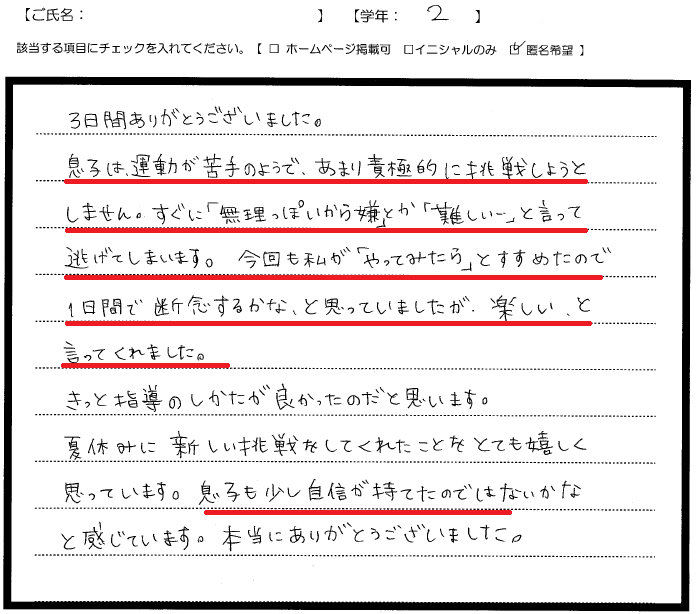 【ご氏名： 】 【学年： 2 】
該当する項目にチェックを入れてください。【 □ ホームページ掲載可 □イニシャルのみ ☑匿名希望 】
3日間ありがとうございました。
息子は、運動が苦手のようで、あまり責極的に挑戦しようと
しません。すぐに「無理っぽいから嫌」とか「難しい〜」と言って
逃げてしまいます。 今回も私が「やってみたら」とすすめたので
1日間で断念するかな、と思っていましたが、楽しい、と
言ってくれました。
きっと指導のしかたが良かったのだと思います。
夏休みに新しい挑戦をしてくれたことをとても嬉しく
思っています。息子も少し自信が持てたのではないかな
と感じています。本当にありがとうございました。